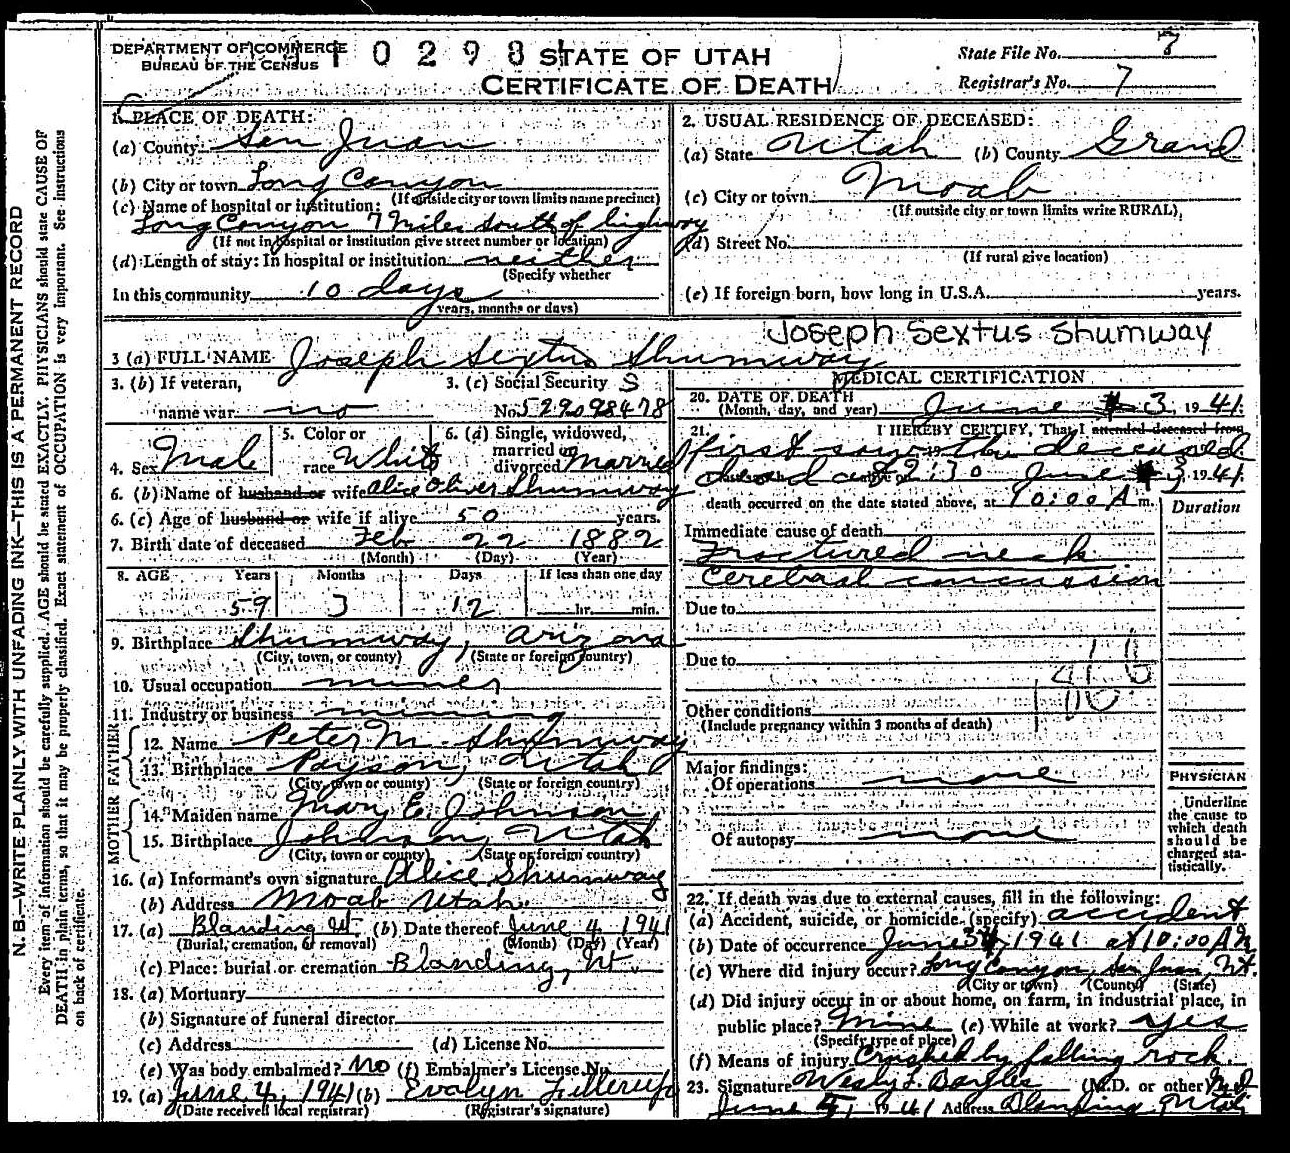 DEPARTMENT OF COMMERCE
BUREAU OF THE CENSUS
STATE OF UTAH
CERTIFICATE OF DEATH
State File No. 7
Registrar's No. 7
1. PLACE OF DEATH:
(a) County San Juan
(b) City or town Long Canyon
(If outside city or town limits name precinct)
(c) Name of hospital or institution:
Long Canyon 7 Miles south of highway
(If not in hospital or institution give street number or location)
(d) Length of stay: In hospital or institution neither
(Specify whether
In this community 10 days
years, months or days)
2. USUAL RESIDENCE OF DECEASED:
(a) State Utah (b) County Grand
(c) City or town Moab
(If outside city or town limits write RURAL)
(d) Street No.
(If rural give location)
(e) If foreign born, how long in U.S.A. years.
Joseph Sextus Shumway
3 (a) FULL NAME Joseph Sextus Shumway
3. (b) If veteran, name war no
3. (c) Social Security S
No. 529098478
4. Sex Male
5. Color or race White
6. (a) Single, widowed, married or divorced Married
6. (b) Name of husband or wife Alice Oliver Shumway
6. (c) Age of husband or wife if alive 50 years.
7. Birth date of deceased Feb 22 1882
(Month) (Day) (Year)
8. AGE Years Months Days If less than one day
59 3 12 hr. min.
9. Birthplace Shumway, Arizona
(City, town, or county) (State or foreign country)
10. Usual occupation miner
11. Industry or business mining
FATHER
12. Name Peter M. Shumway
13. Birthplace Payson, Utah
(City, town or county) (State or foreign country)
MOTHER
14. Maiden name Mary E. Johnson
15. Birthplace Johnson, Utah
(City, town or county) (State or foreign country)
16. (a) Informant's own signature Alice Shumway
(b) Address Moab Utah.
17. (a) Blanding Ut. (b) Date thereof June 4 1941
(Burial, cremation, or removal) (Month) (Day) (Year)
(c) Place: burial or cremation Blanding, Ut.
18. (a) Mortuary
(b) Signature of funeral director
(c) Address (d) License No.
(e) Was body embalmed? No (f) Embalmer's License No.
19. (a) June 4, 1941 (b) Evalyn
(Date received local registrar) (Registrar's signature)
MEDICAL CERTIFICATION
20. DATE OF DEATH
(Month, day, and year) June 3, 1941.
21. I HEREBY CERTIFY, That I attended deceased from
first saw the deceased
dead at 2:30 June 3, 1941.
death occurred on the date stated above, at 10:00 A m.
Duration
Immediate cause of death
Fractured neck
Cerebral concussion
Due to
Due to
Other conditions
(Include pregnancy within 3 months of death)
Major findings:
Of operations none
Of autopsy none
PHYSICIAN
Underline
the cause to
which death
should be
charged sta-
tistically.
22. If death was due to external causes, fill in the following:
(a) Accident, suicide, or homicide (specify) accident
(b) Date of occurrence June 3, 1941 at 10:00 AM
(c) Where did injury occur? Long Canyon, San Juan, Ut.
(City or town) (County) (State)
(d) Did injury occur in or about home, on farm, in industrial place, in
public place? Mine (e) While at work? yes
(Specify type of place)
(f) Means of injury Crushed by falling rock.
23. Signature (M.D. or other) M.D.
June 5, 1941 Address Blanding, Utah
N. B.—WRITE PLAINLY WITH UNFADING INK—THIS IS A PERMANENT RECORD
Every item of information should be carefully supplied. AGE should be stated EXACTLY. PHYSICIANS should state CAUSE OF
DEATH in plain terms, so that it may be properly classified. Exact statement of OCCUPATION is very important. See instructions
on back of certificate.